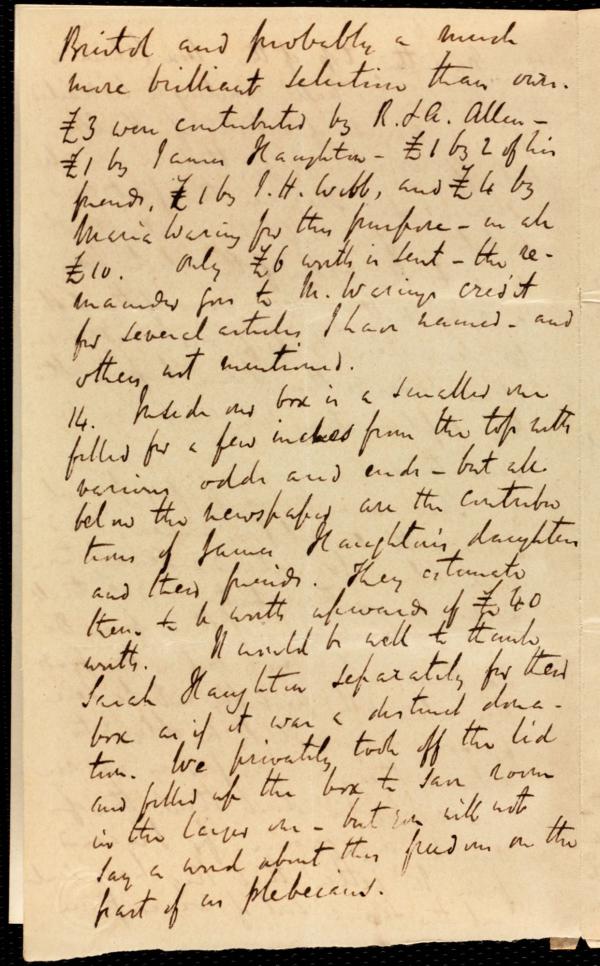 Bristol and probably a much
more brilliant selection than ours.
£3 were contributed by R. & A. Allen -
£1 by James Haughton - £1 by 2 of his
friends, £1 by J. H. Webb, and £4 by
Maria Waring for this purpose - in all
£10. Only £6 worth is sent - the re-
mainder goes to M. Waring's credit
for several articles I have named - and
others not mentioned.
14. Inside our box is a smaller one
filled for a few inches from the top with
various odds and ends - but all
below the newspaper are the contribu
tions of James Haughton's daughters
and their friends. They estimate
them to be worth upwards of £40
worth. It would be well to thank
Sarah Haughton separately for their
box as if it was a distinct dona-
tion. We privately took off the lid
and filled up the box to save room
in the larger one - but you will not
say a word about this freedom on the
part of us plebeians.